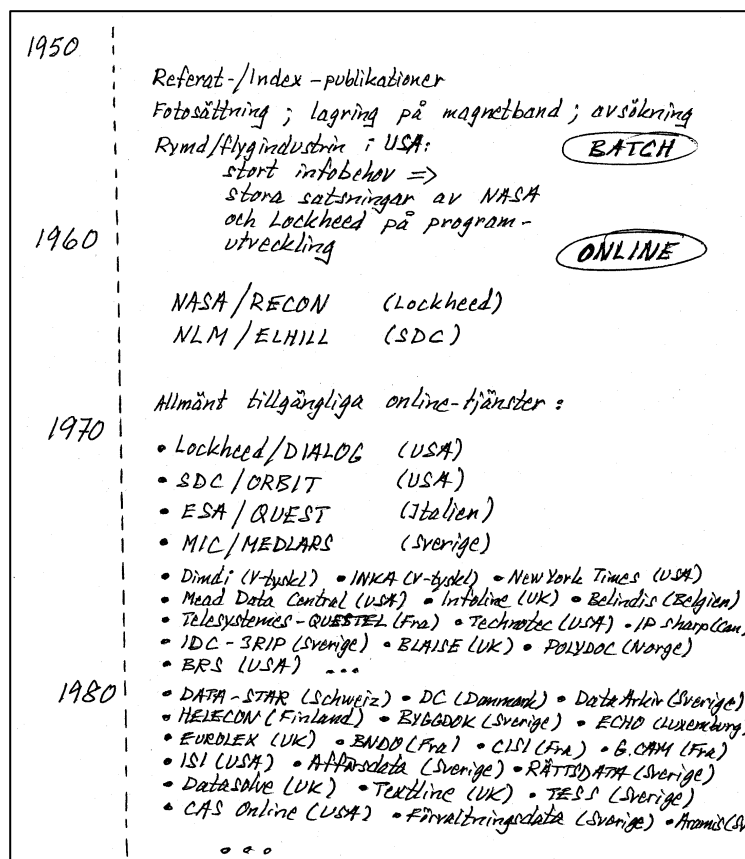 1950
Referat-/Index-publikationer
Fotosättning ; lagring på magnetband ; avsökning
Rymd/flygindustrin i USA: BATCH
stort infobehov =>
stora satsningar av NASA
och Lockheed på program-
1960 utveckling ONLINE
NASA/RECON (Lockheed)
NLM/ELHILL (SDC)
Allmänt tillgängliga online-tjänster :
1970
• Lockheed/DIALOG (USA)
• SDC/ORBIT (USA)
• ESA/QUEST (Italien)
• MIC/MEDLARS (Sverige)
• Dimdi (V-tyskl) • INKA (V-tyskl) • New York Times (USA)
• Mead Data Central (USA) • Infoline (UK) • Belindis (Belgien)
• Telesystemes-QUESTEL (Fra) • Technotec (USA) • IP sharp (Can)
• IDC-3RIP (Sverige) • BLAISE (UK) • POLYDOC (Norge)
• BRS (USA) ...
1980 • DATA-STAR (Schweiz) • DC (Danmark) • DataArkiv (Sverige)
• HELECON (Finland) • BYGGDOK (Sverige) • ECHO (Luxemburg)
• EUROLEX (UK) • BNDO (Fra) • CISI (Fra) • G.CAM (Fra)
• ISI (USA) • Affärsdata (Sverige) • RÄTTSDATA (Sverige)
• Datasolve (UK) • Textline (UK) • TESS (Sverige)
• CAS Online (USA) • Förvaltningsdata (Sverige) • Aramis (Sv
...